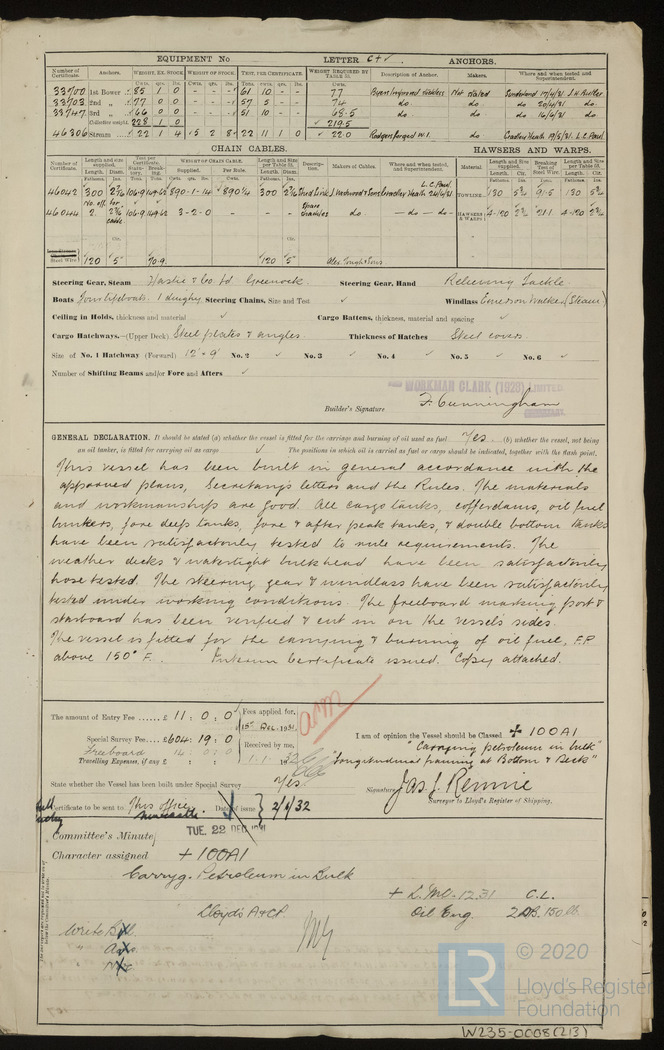 EQUIPMENT No LETTER C+√ ANCHORS.
Number of Certificate. Anchors. WEIGHT, EX. STOCK WEIGHT OF STOCK. TEST, PER CERTIFICATE. WEIGHT REQUIRED BY TABLE 31. Description of Anchor. Makers. Where and when tested and Superintendent.
Cwts. qrs. lbs. Cwts. qrs. lbs. Tons. cwts. qrs. lbs. Cwts.
33700 1st Bower 85 1 0 - - - 61 10 - - 77 Not stated Sunderland
33703 2nd „ 77 0 0 - - - 57 5 - - 74 do. do 20/4/31 do.
33747 3rd „ 66 0 0 - - - 51 10 - - 68.5 do. do 16/4/31 do.
Collective weight. 228 1 0 219.5
46306 Stream 22 1 4 5 2 8 22 11 1 0 22.0 Rodgers forged W.I. do Cradley Heath 19/5/31. L.C. Paul.
CHAIN CABLES. HAWSERS AND WARPS.
Number of Certificate. Length and size supplied. Test per Certificate. WEIGHT OF CHAIN CABLE. Length and size per Table 31. Description. Makers of Cables. Where and when tested, and Superintendent. Material. Length and Size supplied. Breaking Test of Steel Wire. Length and Size per Table 31.
Length. Diam. Statutory. Breaking. Supplied. Per Rule. Length. Diam. Length. Cir. Length. Cir.
46042 300 2 9/16 106.9 149.62 890-1-14 890¼ 300 2 9/16 Stud Link Cradley Heath L.C. Paul. TOWLINE 130 91.5 130
46044 2. 106.9 149.62 3-2-0 - - - Spare Shackles do - do - do - HAWSERS & WARPS 4-120 21.1 4-120
Steel Wire 120 5" 70.9. 120 5" Alex. Gough & Sons
Steering Gear, Steam Hastie & Co Ld Greenock. Steering Gear, Hand Relieving Tackle.
Boats Four lifeboats. 1 dinghy. Steering Chains, Size and Test √ Windlass Emerson Walker (Steam)
Ceiling in Holds, thickness and material √ Cargo Battens, thickness, material and spacing √
Cargo Hatchways.—(Upper Deck) Steel plates & angles. Thickness of Hatches Steel covers
Size of No. 1 Hatchway (Forward) 12'-9" No. 2 √ No. 3 √ No. 4 √ No. 5 √ No. 6 √
Number of Shifting Beams and/or Fore and Afters √
WORKMAN CLARK (1928) LIMITED.
Builder's Signature F. Cunningham
SECRETARY.
GENERAL DECLARATION. It should be stated (a) whether the vessel is fitted for the carriage and burning of oil used as fuel Yes. (b) whether the vessel, not being
an oil tanker, is fitted for carrying oil as cargo √ The positions in which oil is carried as fuel or cargo should be indicated, together with the flash point.
This vessel has been built in general accordance with the
approved plans, Secretary's letters and the Rules. The materials
and workmanship are good. All cargo tanks, cofferdams, oil fuel
bunkers, fore deep tanks, fore & after peak tanks, & double bottom tanks
have been satisfactorily tested to rule requirements. The
weather decks & watertight bulkhead have been satisfactorily
hose tested. The steering gear & windlass have been satisfactorily
tested under working conditions. The freeboard marking port &
starboard has been verified & cut in on the vessels sides.
The vessel is fitted for the carrying & burning of oil fuel, F.P.
above 150° F. Interim Certificate issued. Copy attached.
The amount of Entry Fee ...... £ 11 : 0 : 0
Fees applied for,
15th Dec. 1931.
Special Survey Fee ... £ 604 : 19 : 0
Freeboard 14 : 0 : 0
Received by me,
Travelling Expenses, if any £ : : 1.1.1932
I am of opinion the Vessel should be Classed + 100A1
"Carrying petroleum in bulk"
"Longitudinal framing at Bottom & Deck"
State whether the Vessel has been built under Special Survey Yes.
Signature Jas. J. Rennie
Surveyor to Lloyd's Register of Shipping.
Certificate to be sent to This office Newcastle. Date of issue 2/1/32
Committee's Minute TUE. 22 DEC 1931
Character assigned + 100A1
Carryg. Petroleum in Bulk
+ L.M.C. 12.31 C.L.
Lloyds A&CP. Oil Eng. 2DB. 150 lb.
© 2020
LR
Lloyd's Register
Foundation
W235-0008(2/3)